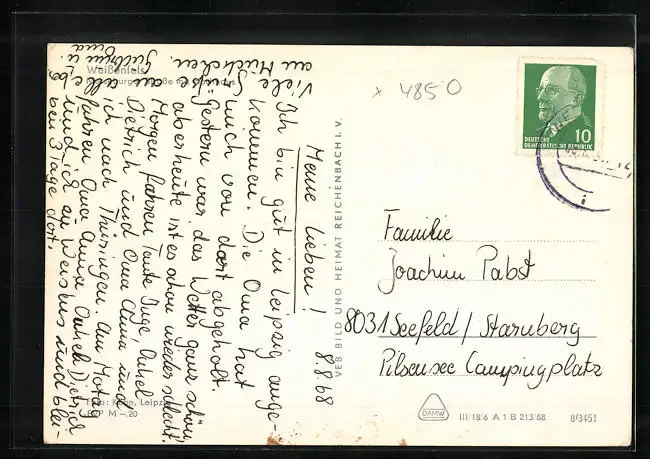 x 4850
8.8.68
Meine Lieben!
Ich bin gut in Leipzig ange-
kommen. Die Oma hat
mich von dort abgeholt.
Gestern war das Wetter ganz schön,
aber heute ist es schon wieder schlecht.
Morgen fahren Tante Inge, Onkel
Dietrich und Oma Anna und
ich nach Thüringen. Am Montag
fahren Oma Anna, Onkel Dietrich
und ich zu Weiskes und blei-
ben 3 Tage dort.
Viele
Grüße
an alle
an Muckchen.
Gudrun u.
Oma
Weißenfels
Foto: Kühn, Leipzig
M –.20
VEB BILD UND HEIMAT REICHENBACH I. V.
10
DEUTSCHE
DEMOKRATISCHE REPUBLIK
Familie
Joachim Pabst
8031 Seefeld / Starnberg
Pilsensee Campingplatz
DAMW
III/18/6 A 1 B 213/68
8/3451